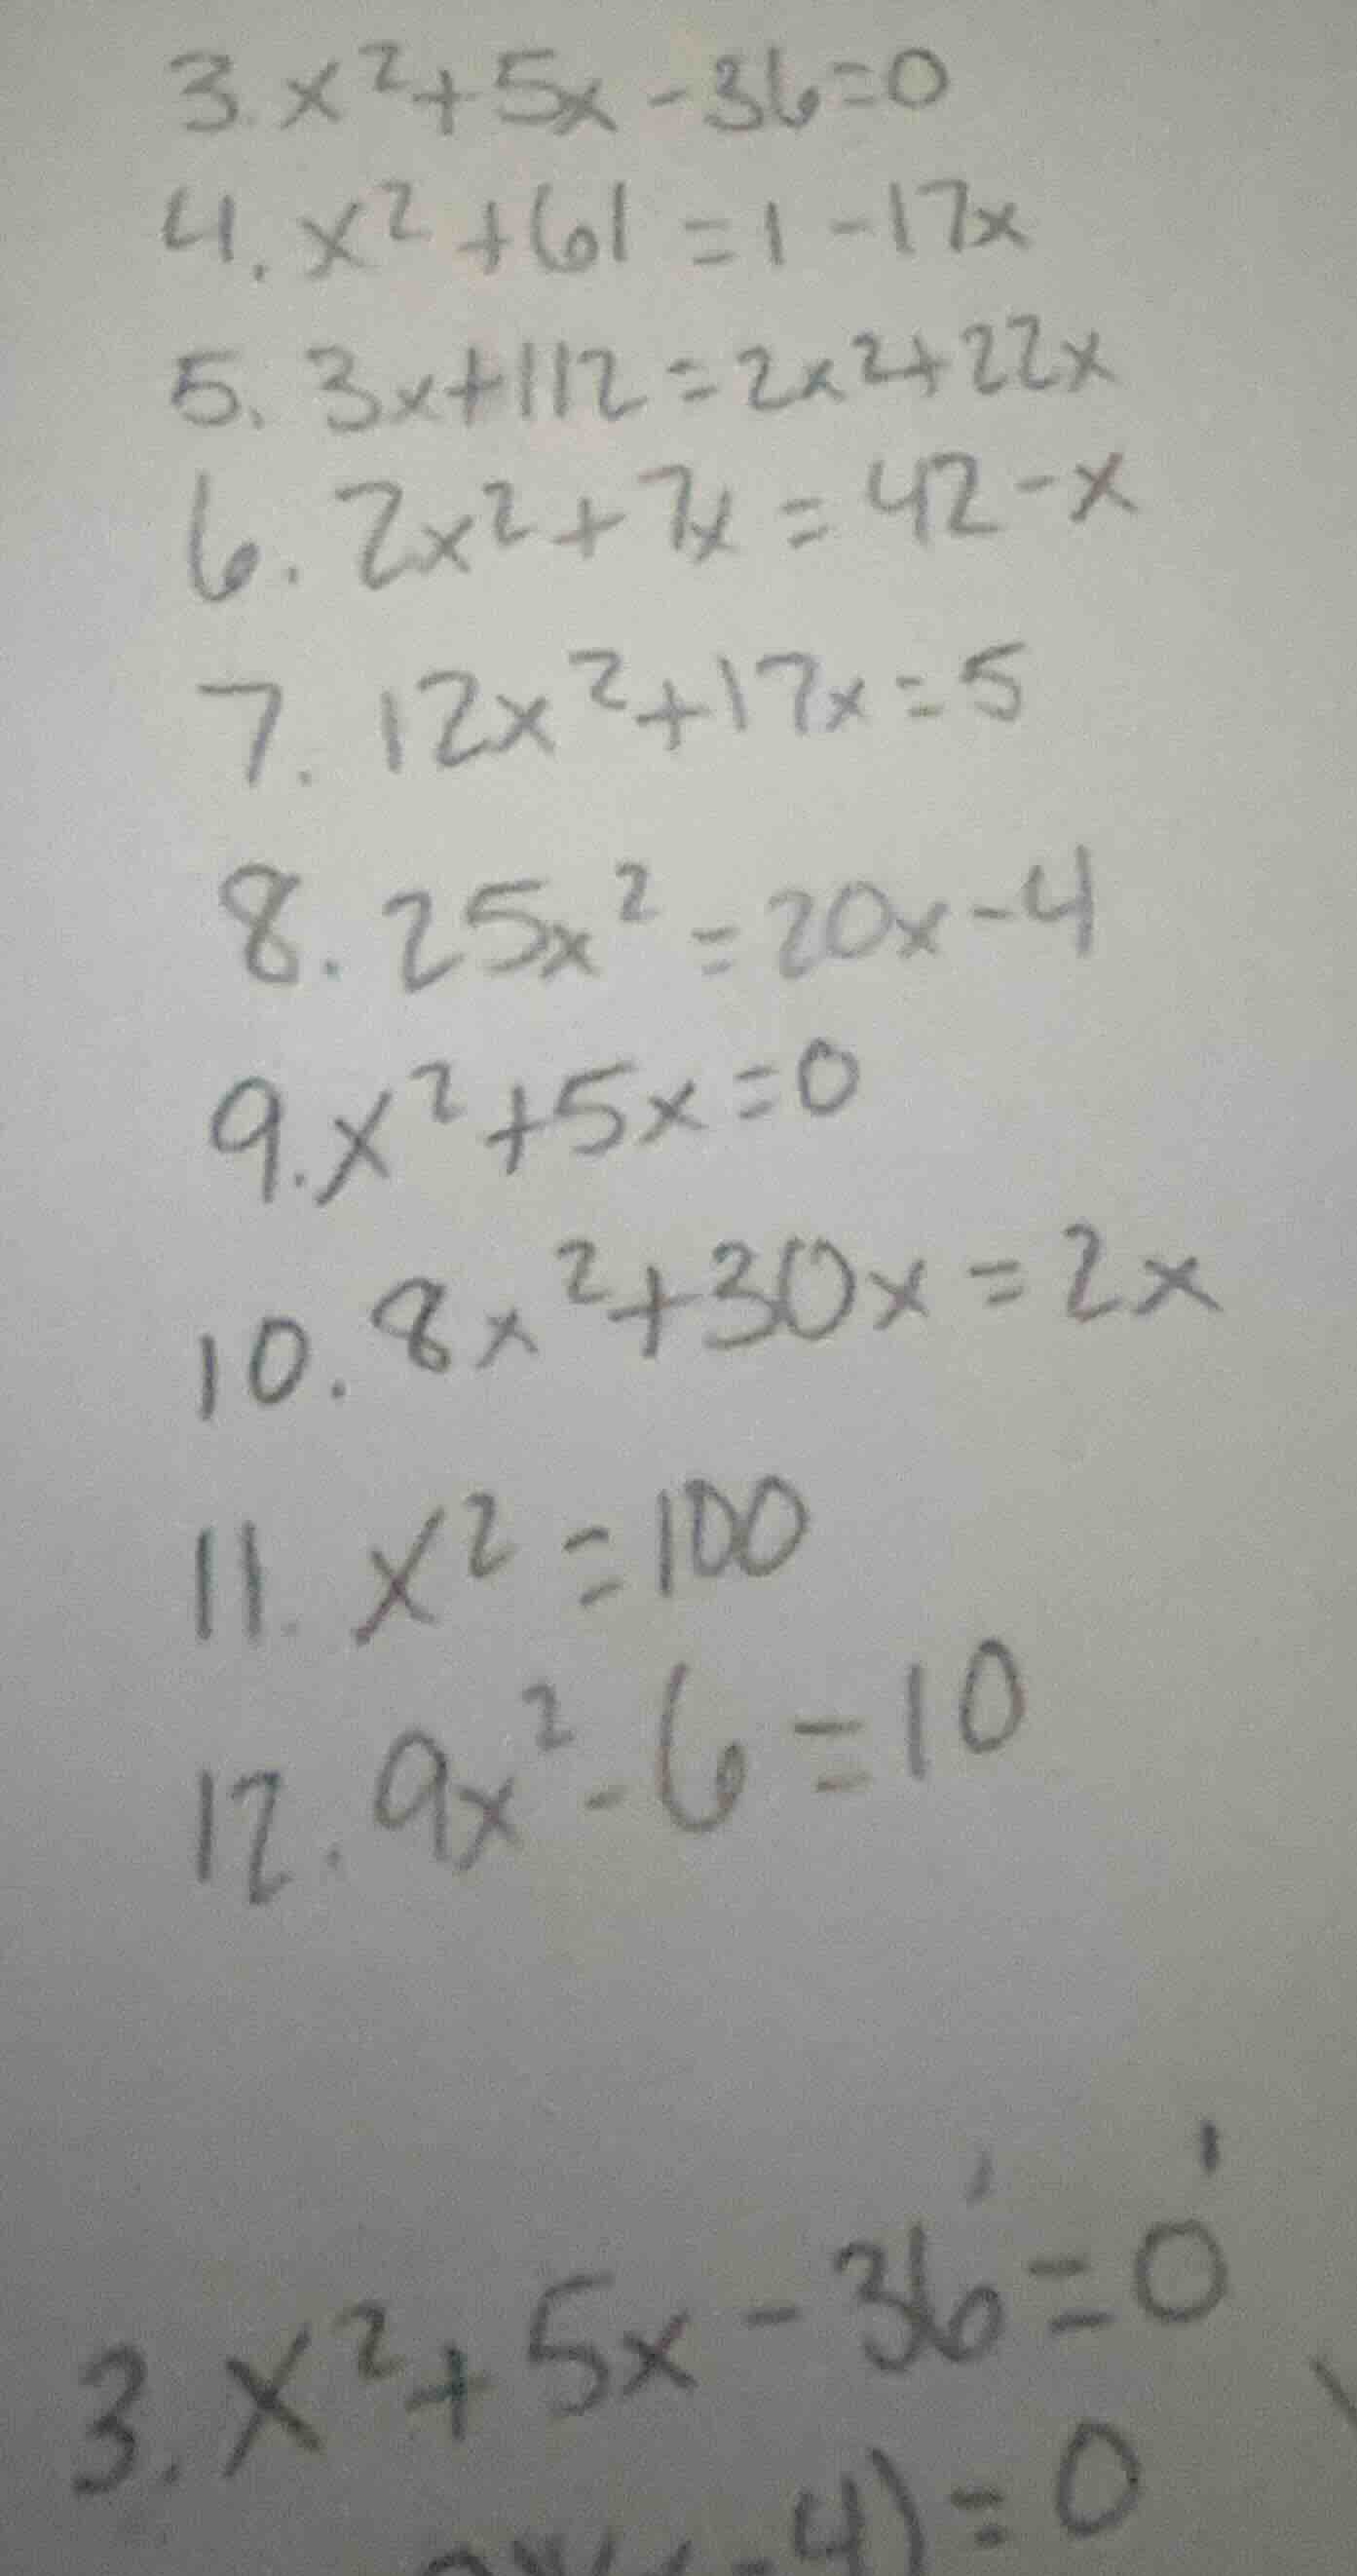 3. x²+5x-36=0
4. x²+61=1-17x
5. 3x+112=2x²+22x
6. 2x²+7x=42-x
7. 12x²+17x=5
8. 25x²=20x-4
9. x²+5x=0
10. 8x²+30x=2x
11. x²=100
12. 9x²-6=10
3. x²+5x-36=0
-4)=0